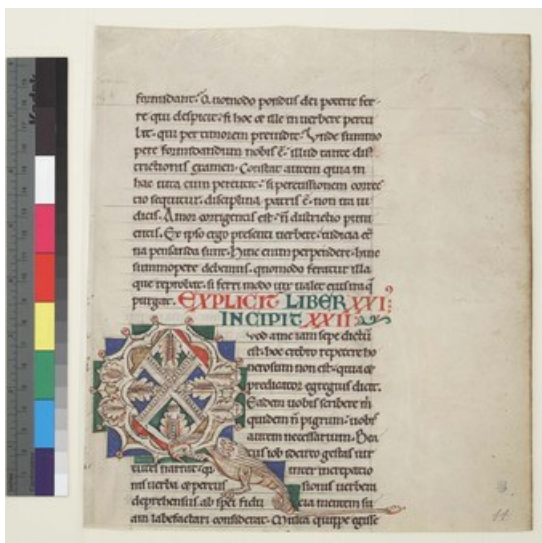 formidant. Quomodo pondus dei poterit fer-
re qui despicit. si hoc & ille in uerbere pertu
lit. qui per timorem preuidit. Unde summo
pere formidandum nobis ē. illud tante dis
trictionis examen. Constat autem quia in
hac uita cum percutit. si percussionem correc
tio sequitur. disciplina patris ē. non ira iu
dicis. Amor corrigentis est. n̄ districtio puni
entis. Ex ipso ergo presenti uerbere iudicia et̄
na pensanda sunt. Hinc enim perpendere. hinc
summopere debemus. quomodo feratur illa
que reprobat. si ferri modo uix ualet eius ira q̄
purgat. EXPLICIT LIBER XXI.
INCIPIT XXII
Quod ante iam sepe dictū
est. hoc crebro repetere ho
nerosum non est. quia &
predicator egregius dicit.
Eadem uobis scribere m̄
quidem n̄ pigrum. uobis
autem necessarium. Bea
tus iob idcirco gestas uir
tutes narrat. qa inter increpatio
nis uerba & percus sionis uerbera
deprehensus ab spei fidu cia mentem su
am labefactari considerat. Multa quippe egisse